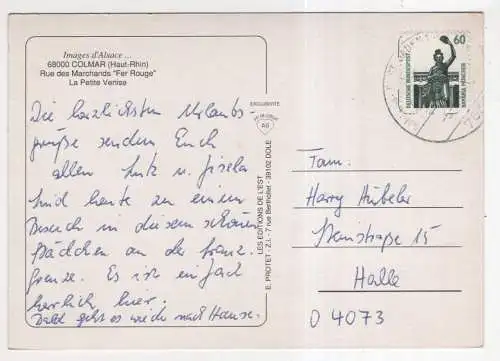 Images d'Alsace ...
68000 COLMAR (Haut-Rhin)
Rue des Marchands "Fer Rouge"
La Petite Venise
Die herzlichsten Urlaubs-
grüße senden Euch
allen Lutz u. Gisela
Sind heute zu einem
Besuch in diesem schönen
Städtchen an der franz.
Grenze. Es ist einfach
herrlich hier.
Bald geht es wieder nach Hause.
EXCLUSIVITE
LES EDITIONS DE L'EST
E. PROTET - Z.I. - 7 rue Berthollet - 39102 DOLE
60
DEUTSCHE BUNDESPOST
BAVARIA MÜNCHEN
Fam.
Harry Hübeler
Steinstraße 15
Halle
O 4073